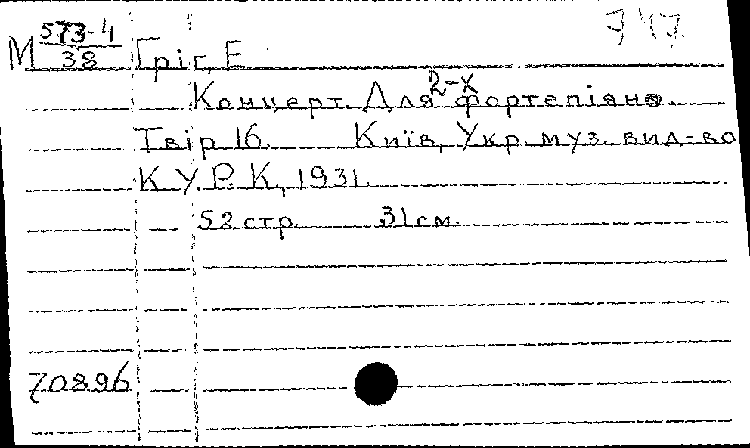 747
М 573-4/38 Гріг, Е
Концерт. Для 2-х фортепіяно.
Твір 16. Київ, Укр. муз. вид-во
К. У. Р. К., 1931.
52 стр. 31 см.
70896